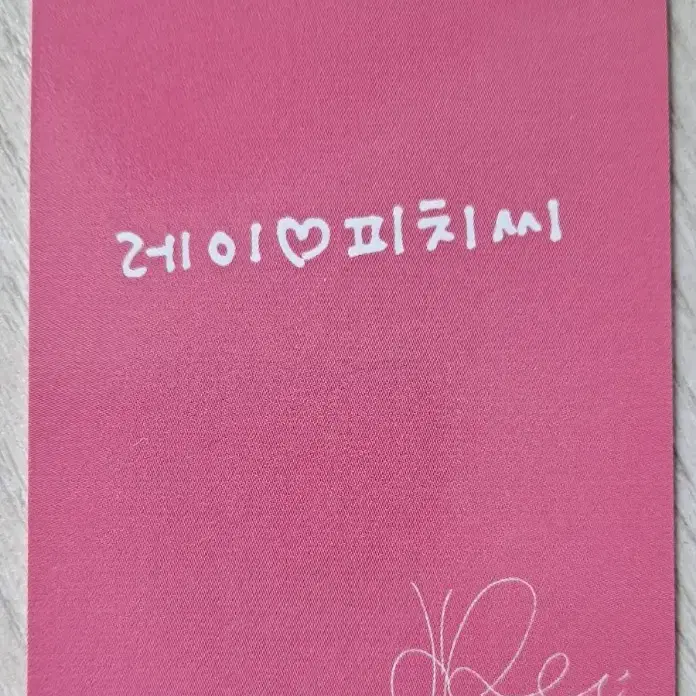 레이♡피치씨
Rei